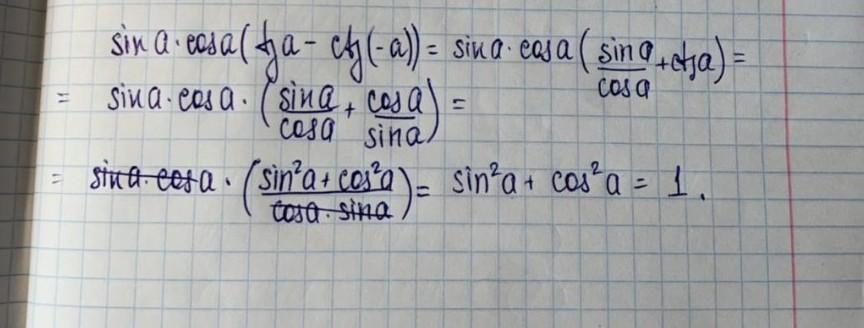 sin a · cos a (tg a - ctg(-a)) = sin a · cos a (sin a/cos a + ctg a) =
= sin a · cos a · (sin a/cos a + cos a/sin a) =
= sin a · cos a · (sin²a + cos²a/cos a · sin a) = sin²a + cos²a = 1.